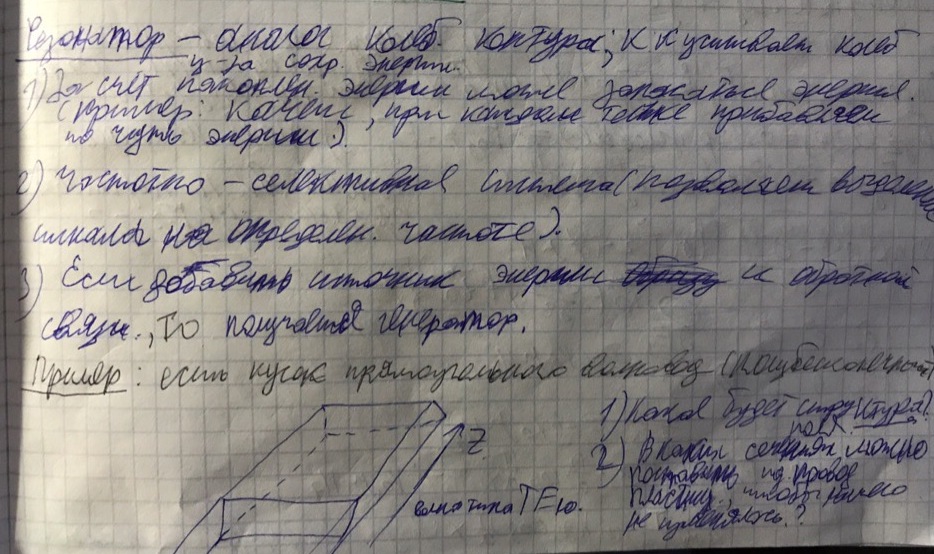 Резонатор – аналог колеб. контура; К К учитывает колеб
з-на сохр. энергии.
1) За счет накоплен. энергии может запасаться энергия.
(пример: качели, при каждом толчке прибавляем
по чуть энергии).
2) Частотно – селективная система (позволяет выделение
сигнала на определен. частоте).
3) Если добавить источник энергии и обратной
связи., То получается генератор.
Пример: есть кусок прямоугольного волновод (полубесконечный)
1) Какая будет структура?
поля
Z
2) В каких сечениях можно
поставить провод
волна типа TE₁₀.
пластину, чтобы ничего
не поменялось?